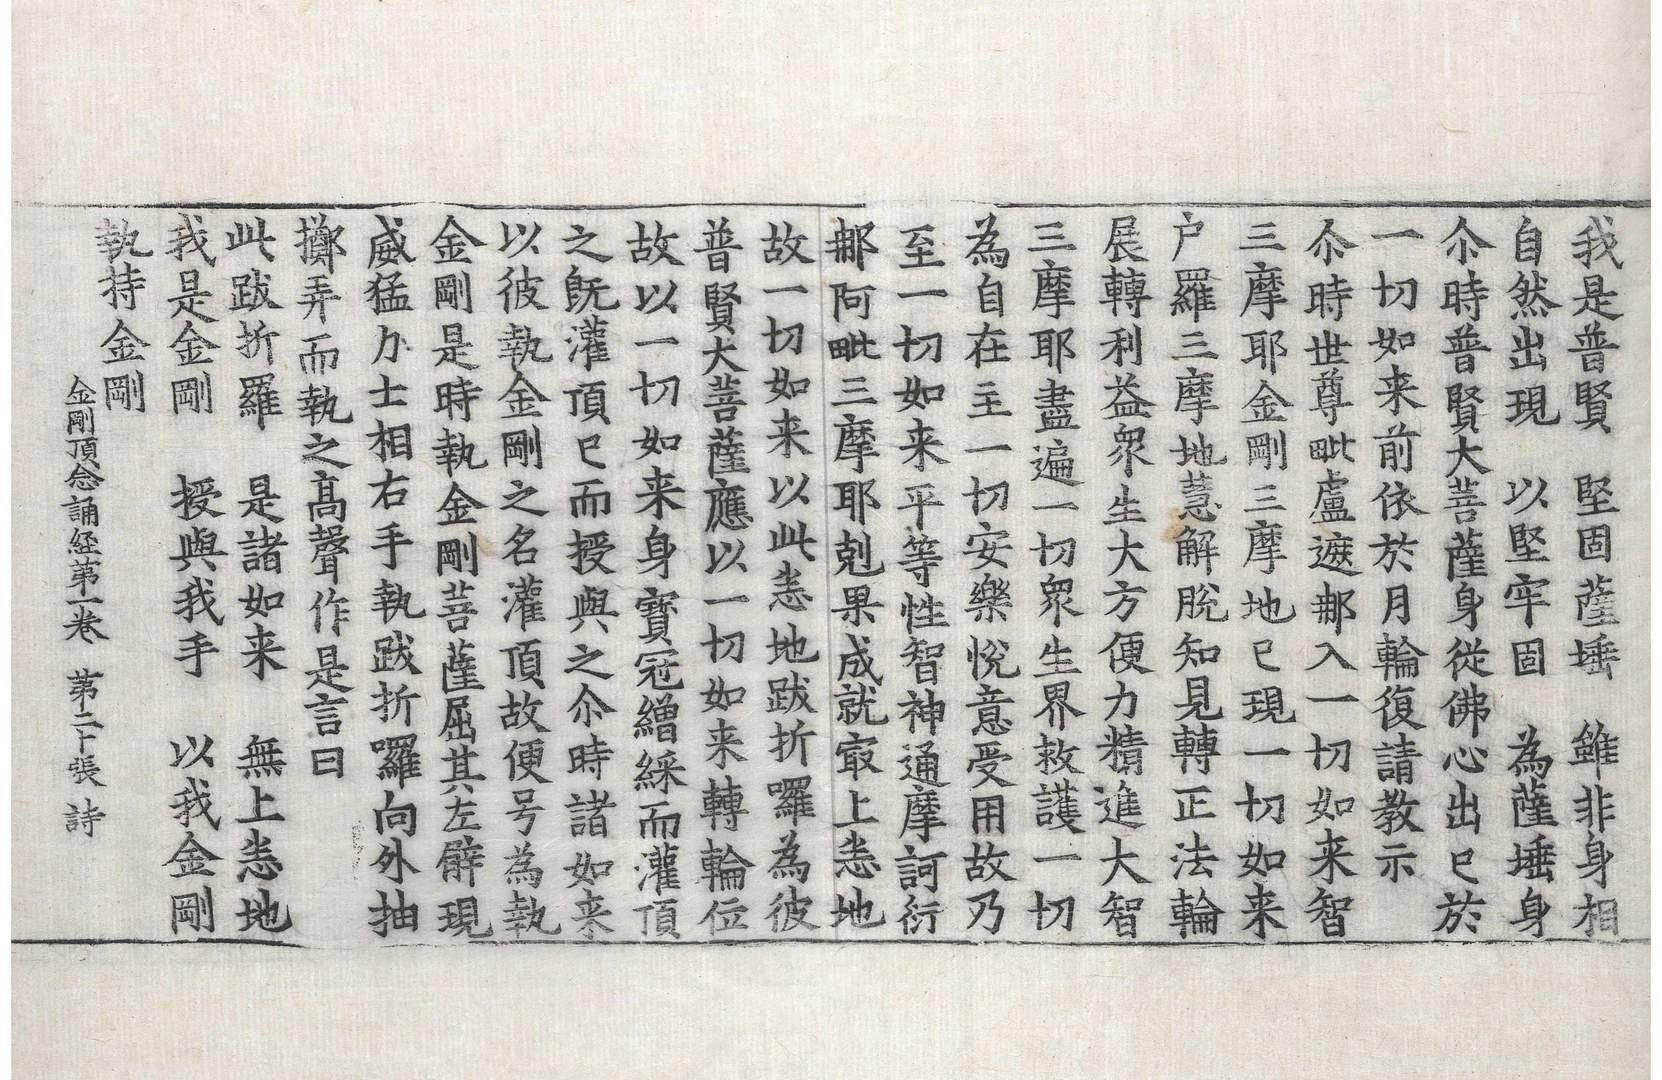 我是普賢　堅固薩埵　雖非身相
自然出現　以堅牢固　為薩埵身
尒時普賢大菩薩身從佛心出已於
一切如来前依於月輪復請教示
尒時世尊毗盧遮那入一切如来智
三摩耶金剛三摩地已現一切如来
户羅三摩地慧解脫知見轉正法輪
展轉利益衆生大方便力精進大智
三摩耶盡遍一切衆生界救護一切
為自在主一切安樂悅意受用故乃
至一切如来平等性智神通摩訶衍
那阿毗三摩耶剋果成就㝡上悉地
故一切如来以此悉地跋折囉為彼
普賢大菩薩應以一切如来轉輪位
故以一切如来身寶冠繒綵而灌頂
之旣灌頂已而授與之尒時諸如来
以彼執金剛之名灌頂故便号為執
金剛是時執金剛菩薩屈其左臂現
威猛力士相右手執跋折囉向外抽
擲弄而執之髙聲作是言曰
此跋折羅　是諸如来　無上悉地
我是金剛　授與我手　以我金剛
執持金剛
金剛頂念誦経第一卷　第二十張　詩